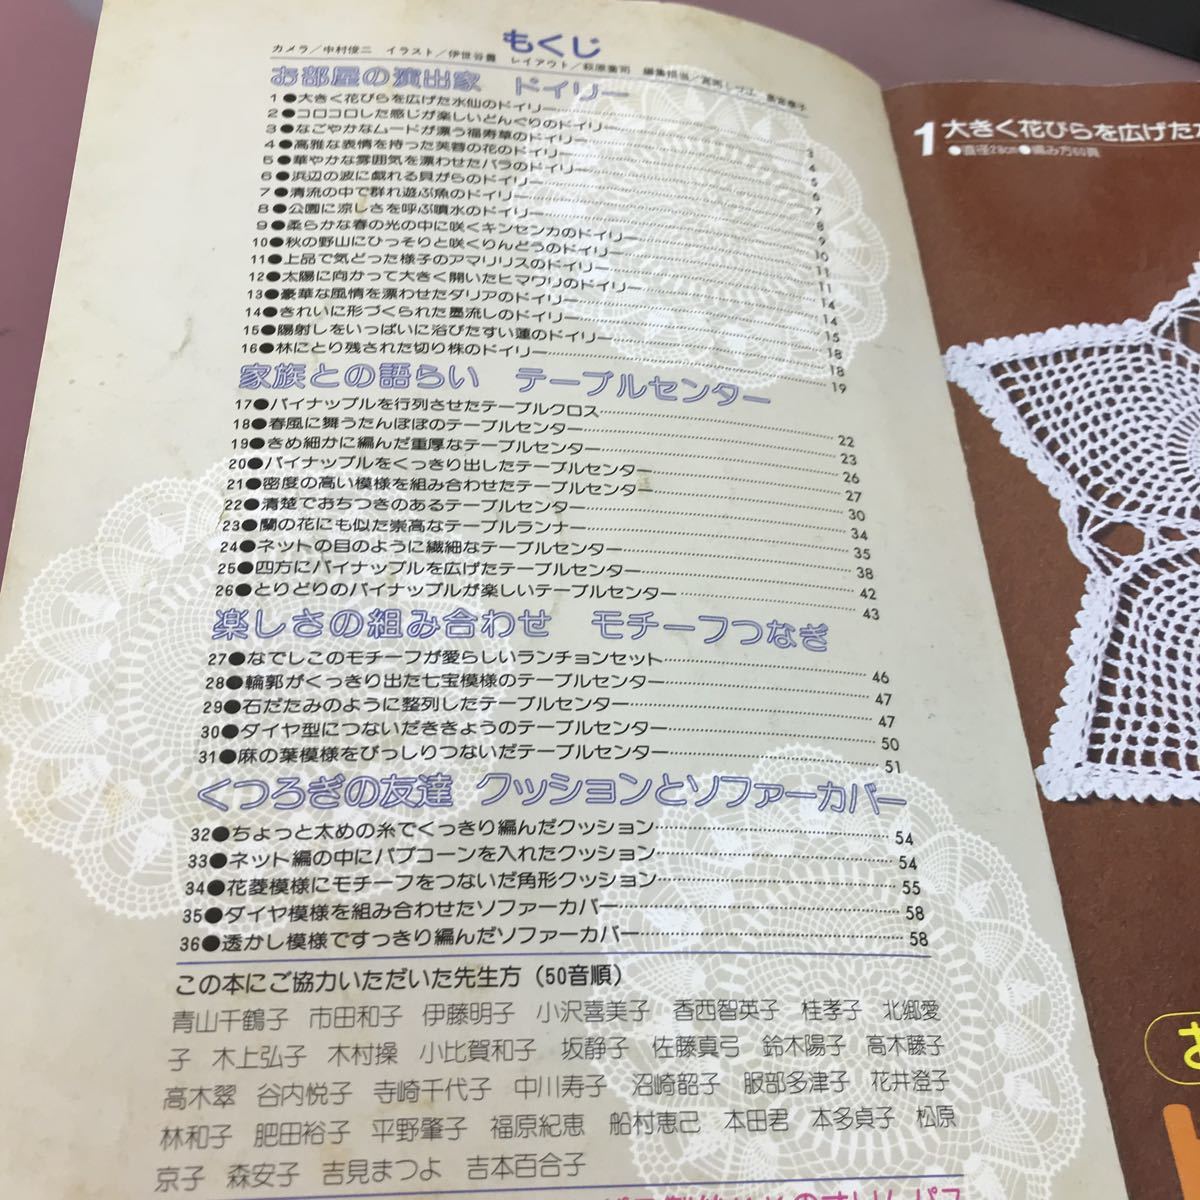 もくじ
カメラ／中村俊二　イラスト／伊世谷豊　レイアウト／萩原葉司　編集担当／
お部屋の演出家　ドイリー
1●大きく花びらを広げた水仙のドイリー 3
2●コロコロした感じが楽しいどんぐりのドイリー 4
3●なごやかなムードが漂う福寿草のドイリー 5
4●高雅な表情を持った芙蓉の花のドイリー 6
5●華やかな雰囲気を漂わせたバラのドイリー 7
6●浜辺の波に戯れる貝がらのドイリー 8
7●清流の中で群れ遊ぶ魚のドイリー 9
8●公園に涼しさを呼ぶ噴水のドイリー 10
9●柔らかな春の光の中に咲くキンセンカのドイリー 11
10●秋の野山にひっそりと咲くりんどうのドイリー 11
11●上品で気どった様子のアマリリスのドイリー 14
12●太陽に向かって大きく開いたヒマワリのドイリー 14
13●豪華な風情を漂わせたダリアのドイリー 15
14●きれいに形づくられた墨流しのドイリー 18
15●陽射しをいっぱいに浴びたすい蓮のドイリー 18
16●林にとり残された切り株のドイリー 19
家族との語らい　テーブルセンター
17●パイナップルを行列させたテーブルクロス 22
18●春風に舞うたんぽぽのテーブルセンター 23
19●きめ細かに編んだ重厚なテーブルセンター 26
20●パイナップルをくっきり出したテーブルセンター 27
21●密度の高い模様を組み合わせたテーブルセンター 30
22●清楚でおちつきのあるテーブルセンター 34
23●蘭の花にも似た崇高なテーブルランナー 35
24●ネットの目のように繊細なテーブルセンター 38
25●四方にパイナップルを広げたテーブルセンター 42
26●とりどりのパイナップルが楽しいテーブルセンター 43
楽しさの組み合わせ　モチーフつなぎ
27●なでしこのモチーフが愛らしいランチョンセット 46
28●輪郭がくっきり出た七宝模様のテーブルセンター 47
29●石だたみのように整列したテーブルセンター 47
30●ダイヤ型につないだききょうのテーブルセンター 50
31●麻の葉模様をびっしりつないだテーブルセンター 51
くつろぎの友達　クッションとソファーカバー
32●ちょっと太めの糸でくっきり編んだクッション 54
33●ネット編の中にパプコーンを入れたクッション 54
34●花菱模様にモチーフをつないだ角形クッション 55
35●ダイヤ模様を組み合わせたソファーカバー 58
36●透かし模様ですっきり編んだソファーカバー 58
この本にご協力いただいた先生方（50音順）
青山千鶴子　市田和子　伊藤明子　小沢喜美子　香西智英子　桂孝子　北郷愛
子　木上弘子　木村操　小比賀和子　坂静子　佐藤真弓　鈴木陽子　高木藤子
高木翠　谷内悦子　寺崎千代子　中川寿子　沼崎韶子　服部多津子　花井澄子
林和子　肥田裕子　平野肇子　福原紀恵　船村恵己　本田君　本多貞子　松原
京子　森安子　吉見まつよ　吉本百合子
1 大きく花びらを広げた
●直径28cm●編み方60頁